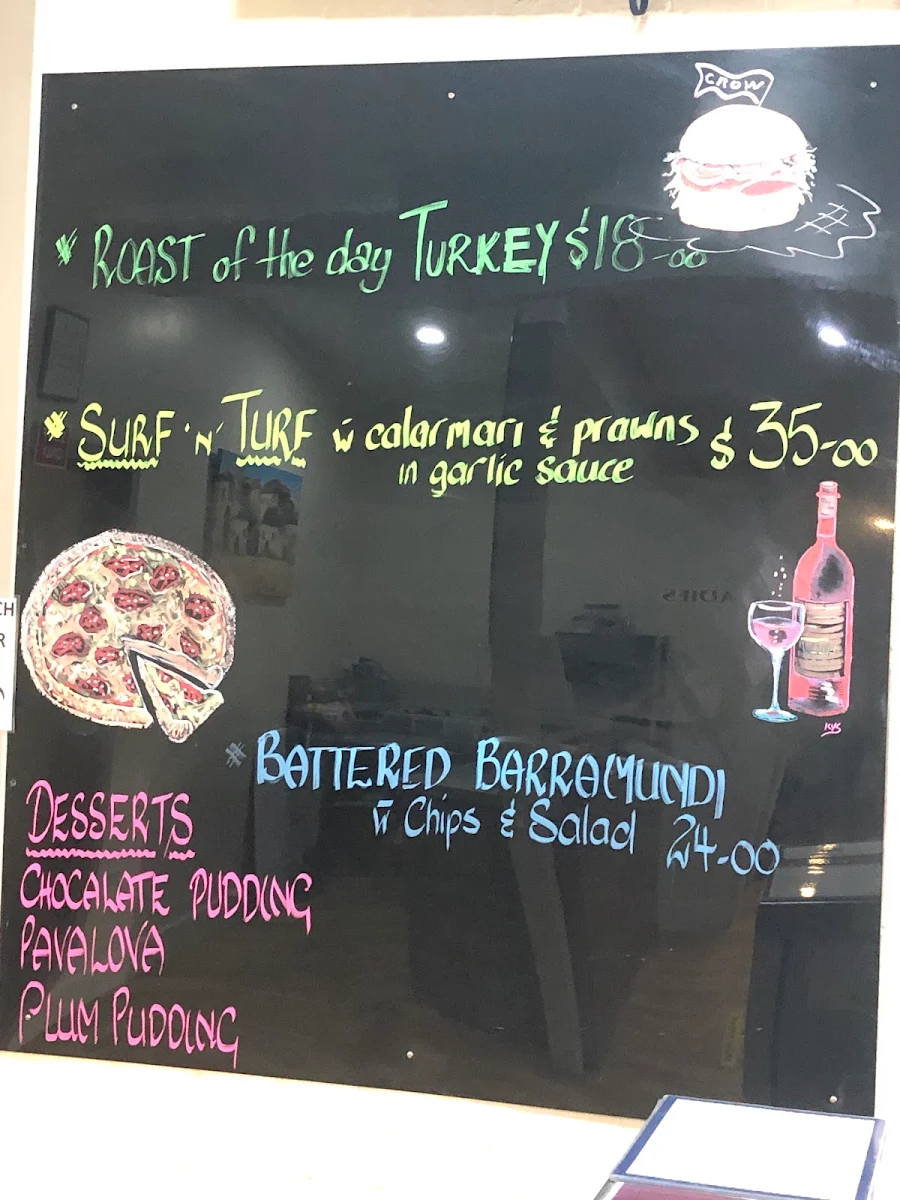 CROW
* ROAST of the day TURKEY $18-00
* SURF 'N' TURF w calarmari & prawns $35-00
in garlic sauce
* BATTERED BARRAMUNDI
w Chips & Salad 24-00
DESSERTS
CHOCALATE PUDDING
PAVALOVA
PLUM PUDDING